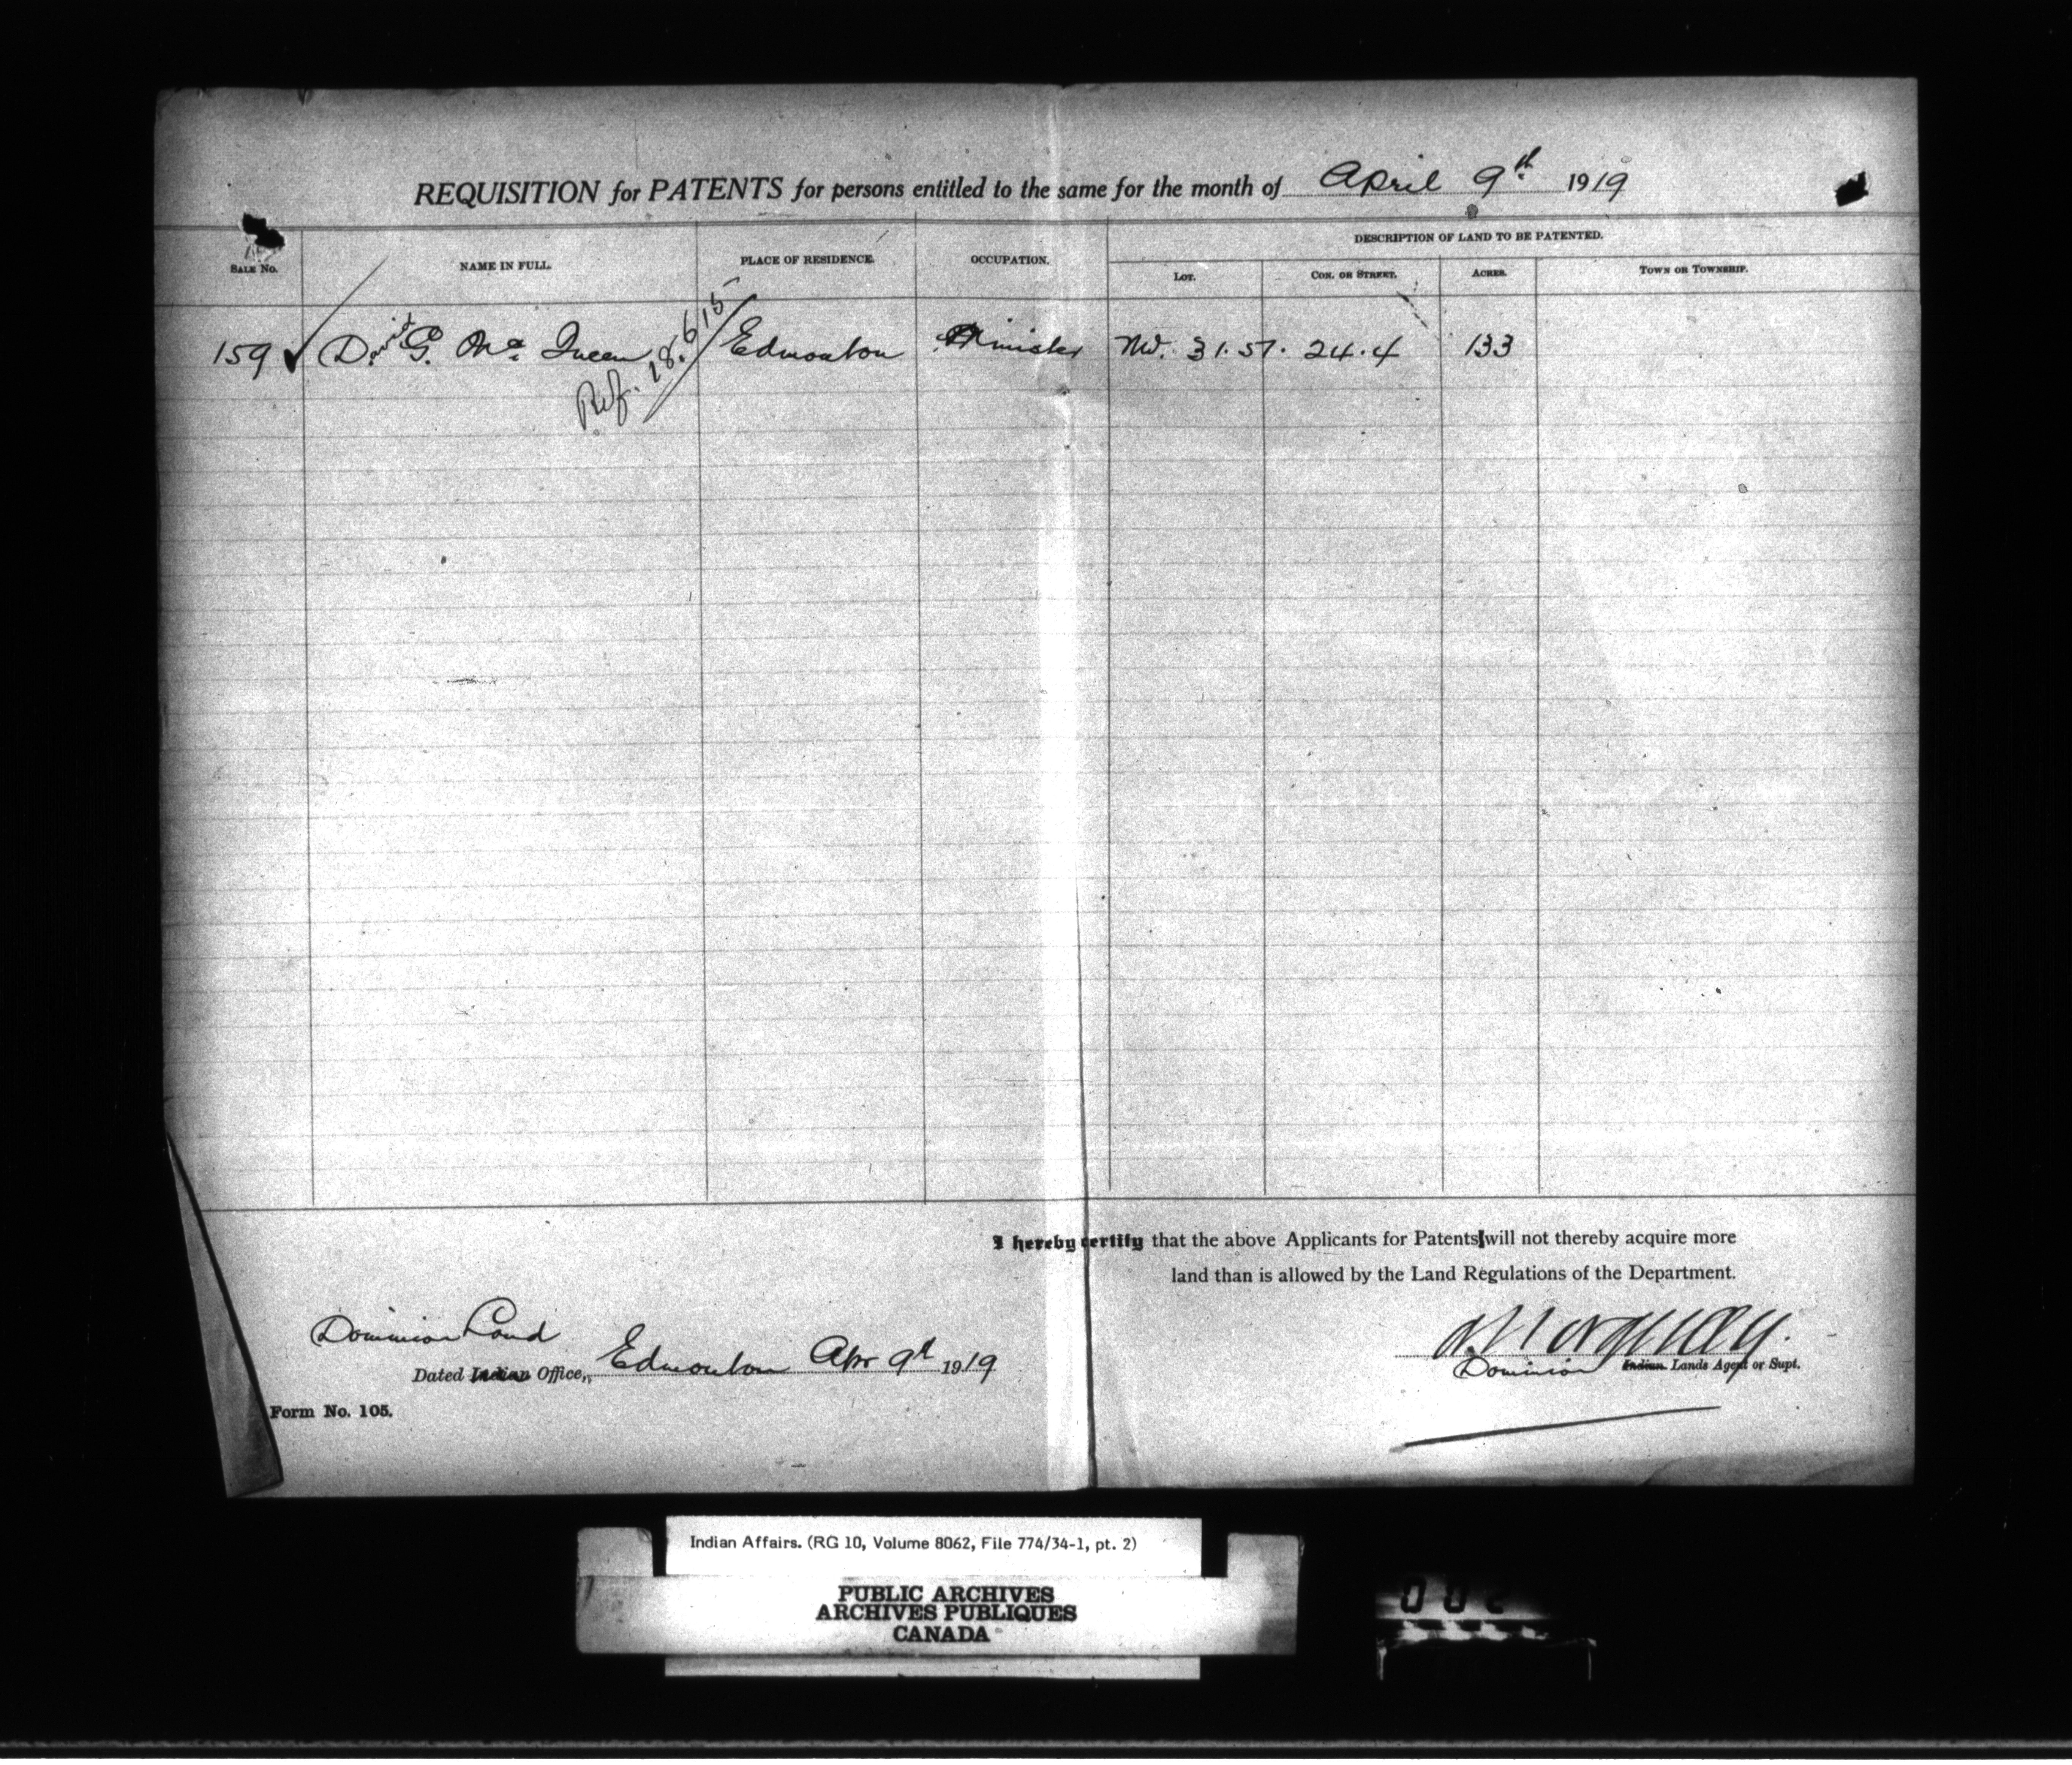 REQUISITION for PATENTS for persons entitled to the same for the month of April 9th 1919
DESCRIPTION OF LAND TO BE PATENTED.
SALE No. NAME IN FULL. PLACE OF RESIDENCE. OCCUPATION. LOT. CON. OR STREET. ACRES. TOWN OR TOWNSHIP.
159 David G. McQueen Edmonton Minister NW. 31.57. 24.4 133
Ref. 18.6/15
I hereby certify that the above Applicants for Patents will not thereby acquire more
land than is allowed by the Land Regulations of the Department.
Dominion Land
Dated Indian Office, Edmonton Apr 9th 1919
Dominion Indian Lands Agent or Supt.
Form No. 105.
Indian Affairs. (RG 10, Volume 8062, File 774/34-1, pt. 2)
PUBLIC ARCHIVES
ARCHIVES PUBLIQUES
CANADA